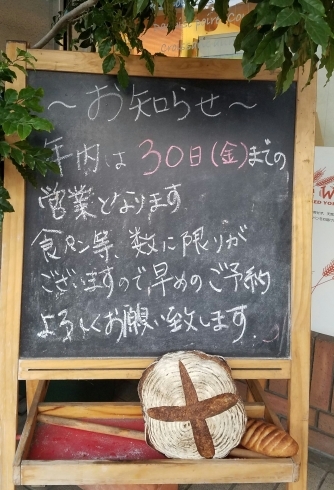 ～お知らせ～
年内は30日(金)までの
営業となります
食パン等、数に限りが
ございますので、早めのご予約
よろしくお願い致します。